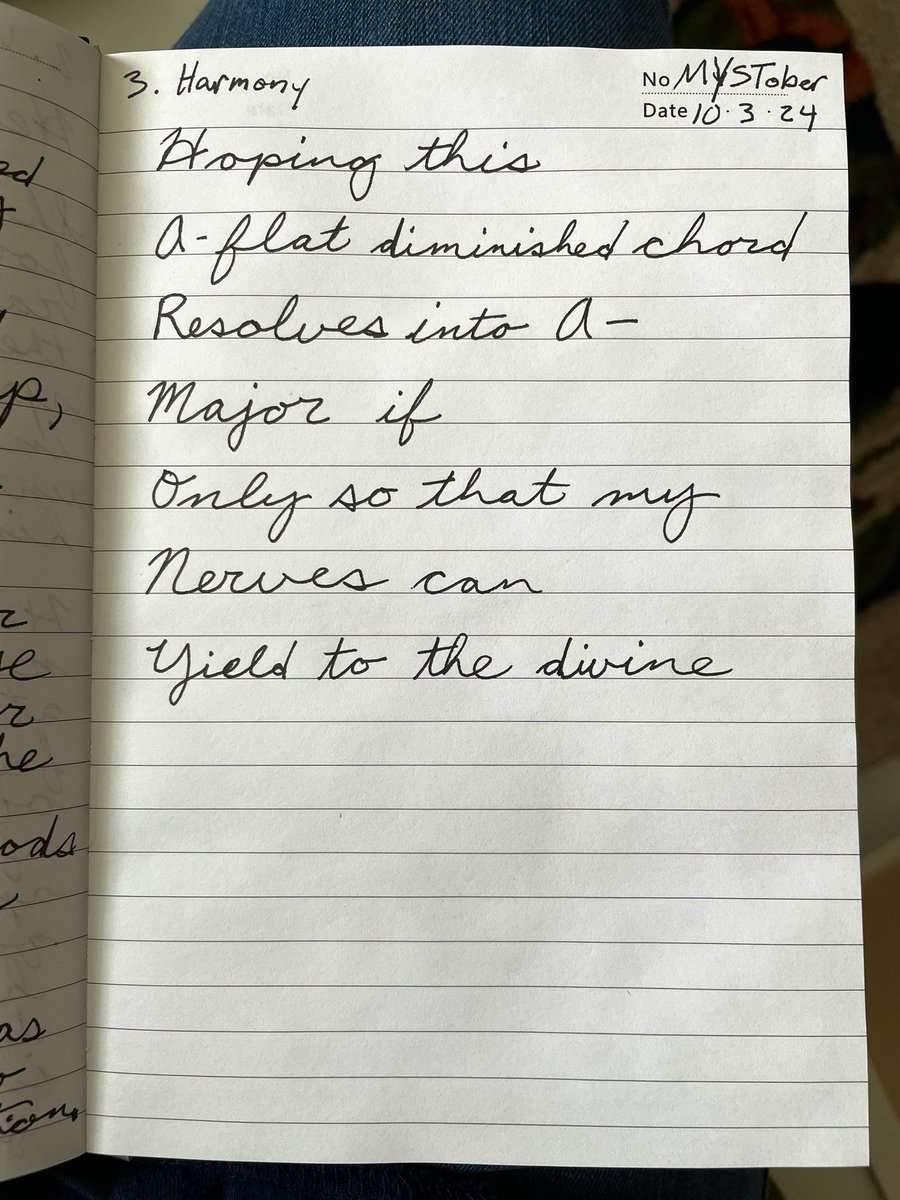 3. Harmony
No MYSTober
Date 10.3.24
Hoping this
A-flat diminished chord
Resolves into A-
Major if
Only so that my
Nerves can
Yield to the divine
ods
as